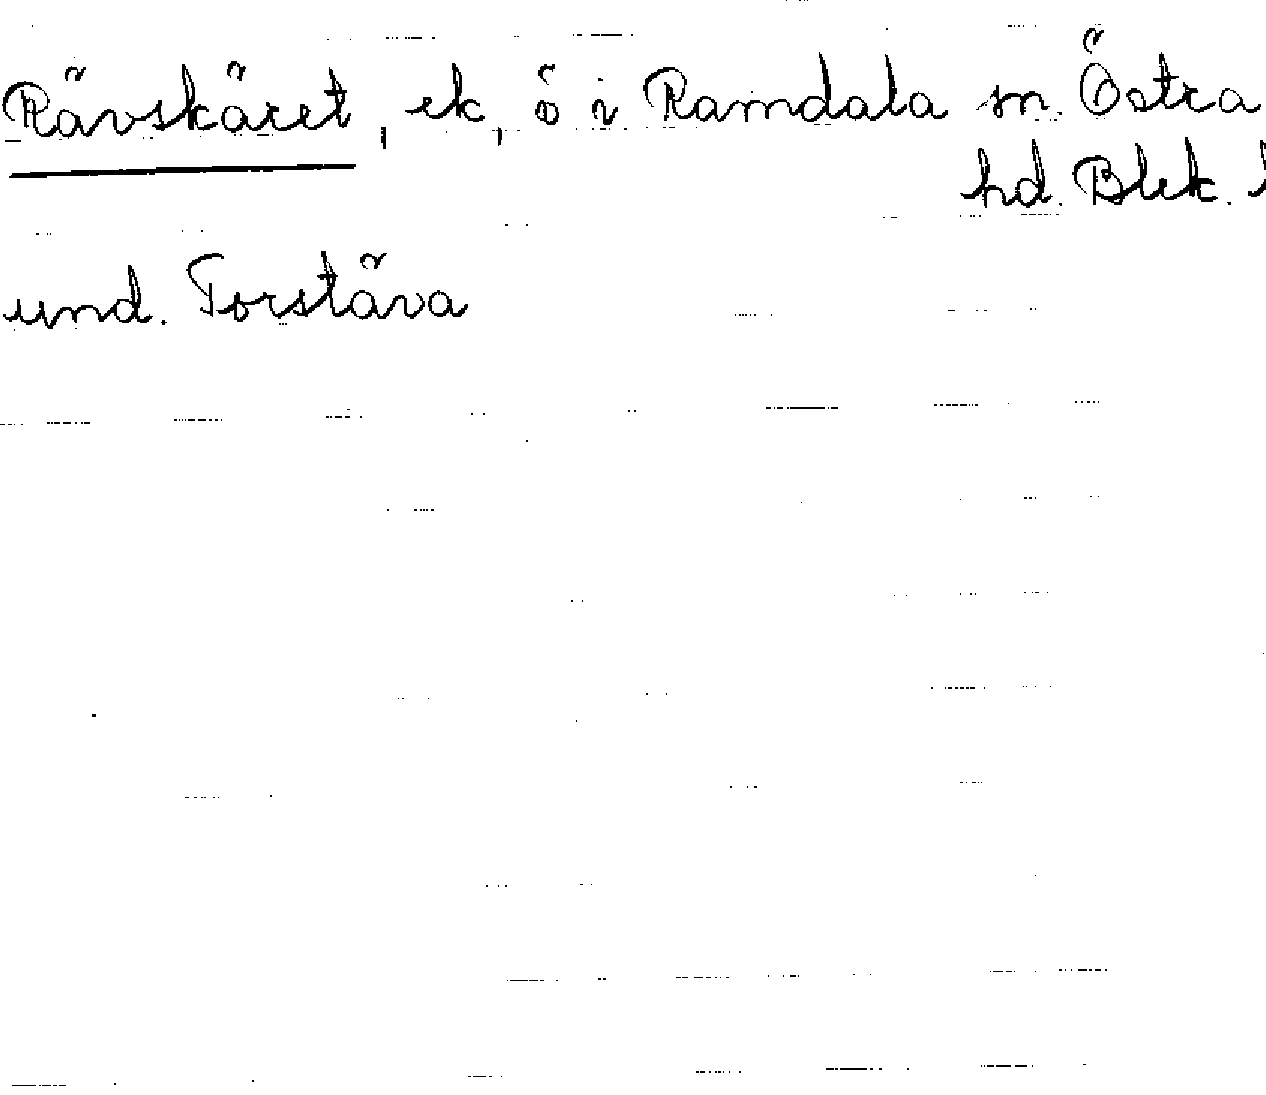 Rävskäret, ek, ö i Ramdala sn. Östra
hd. Blek.
und. Torstäva